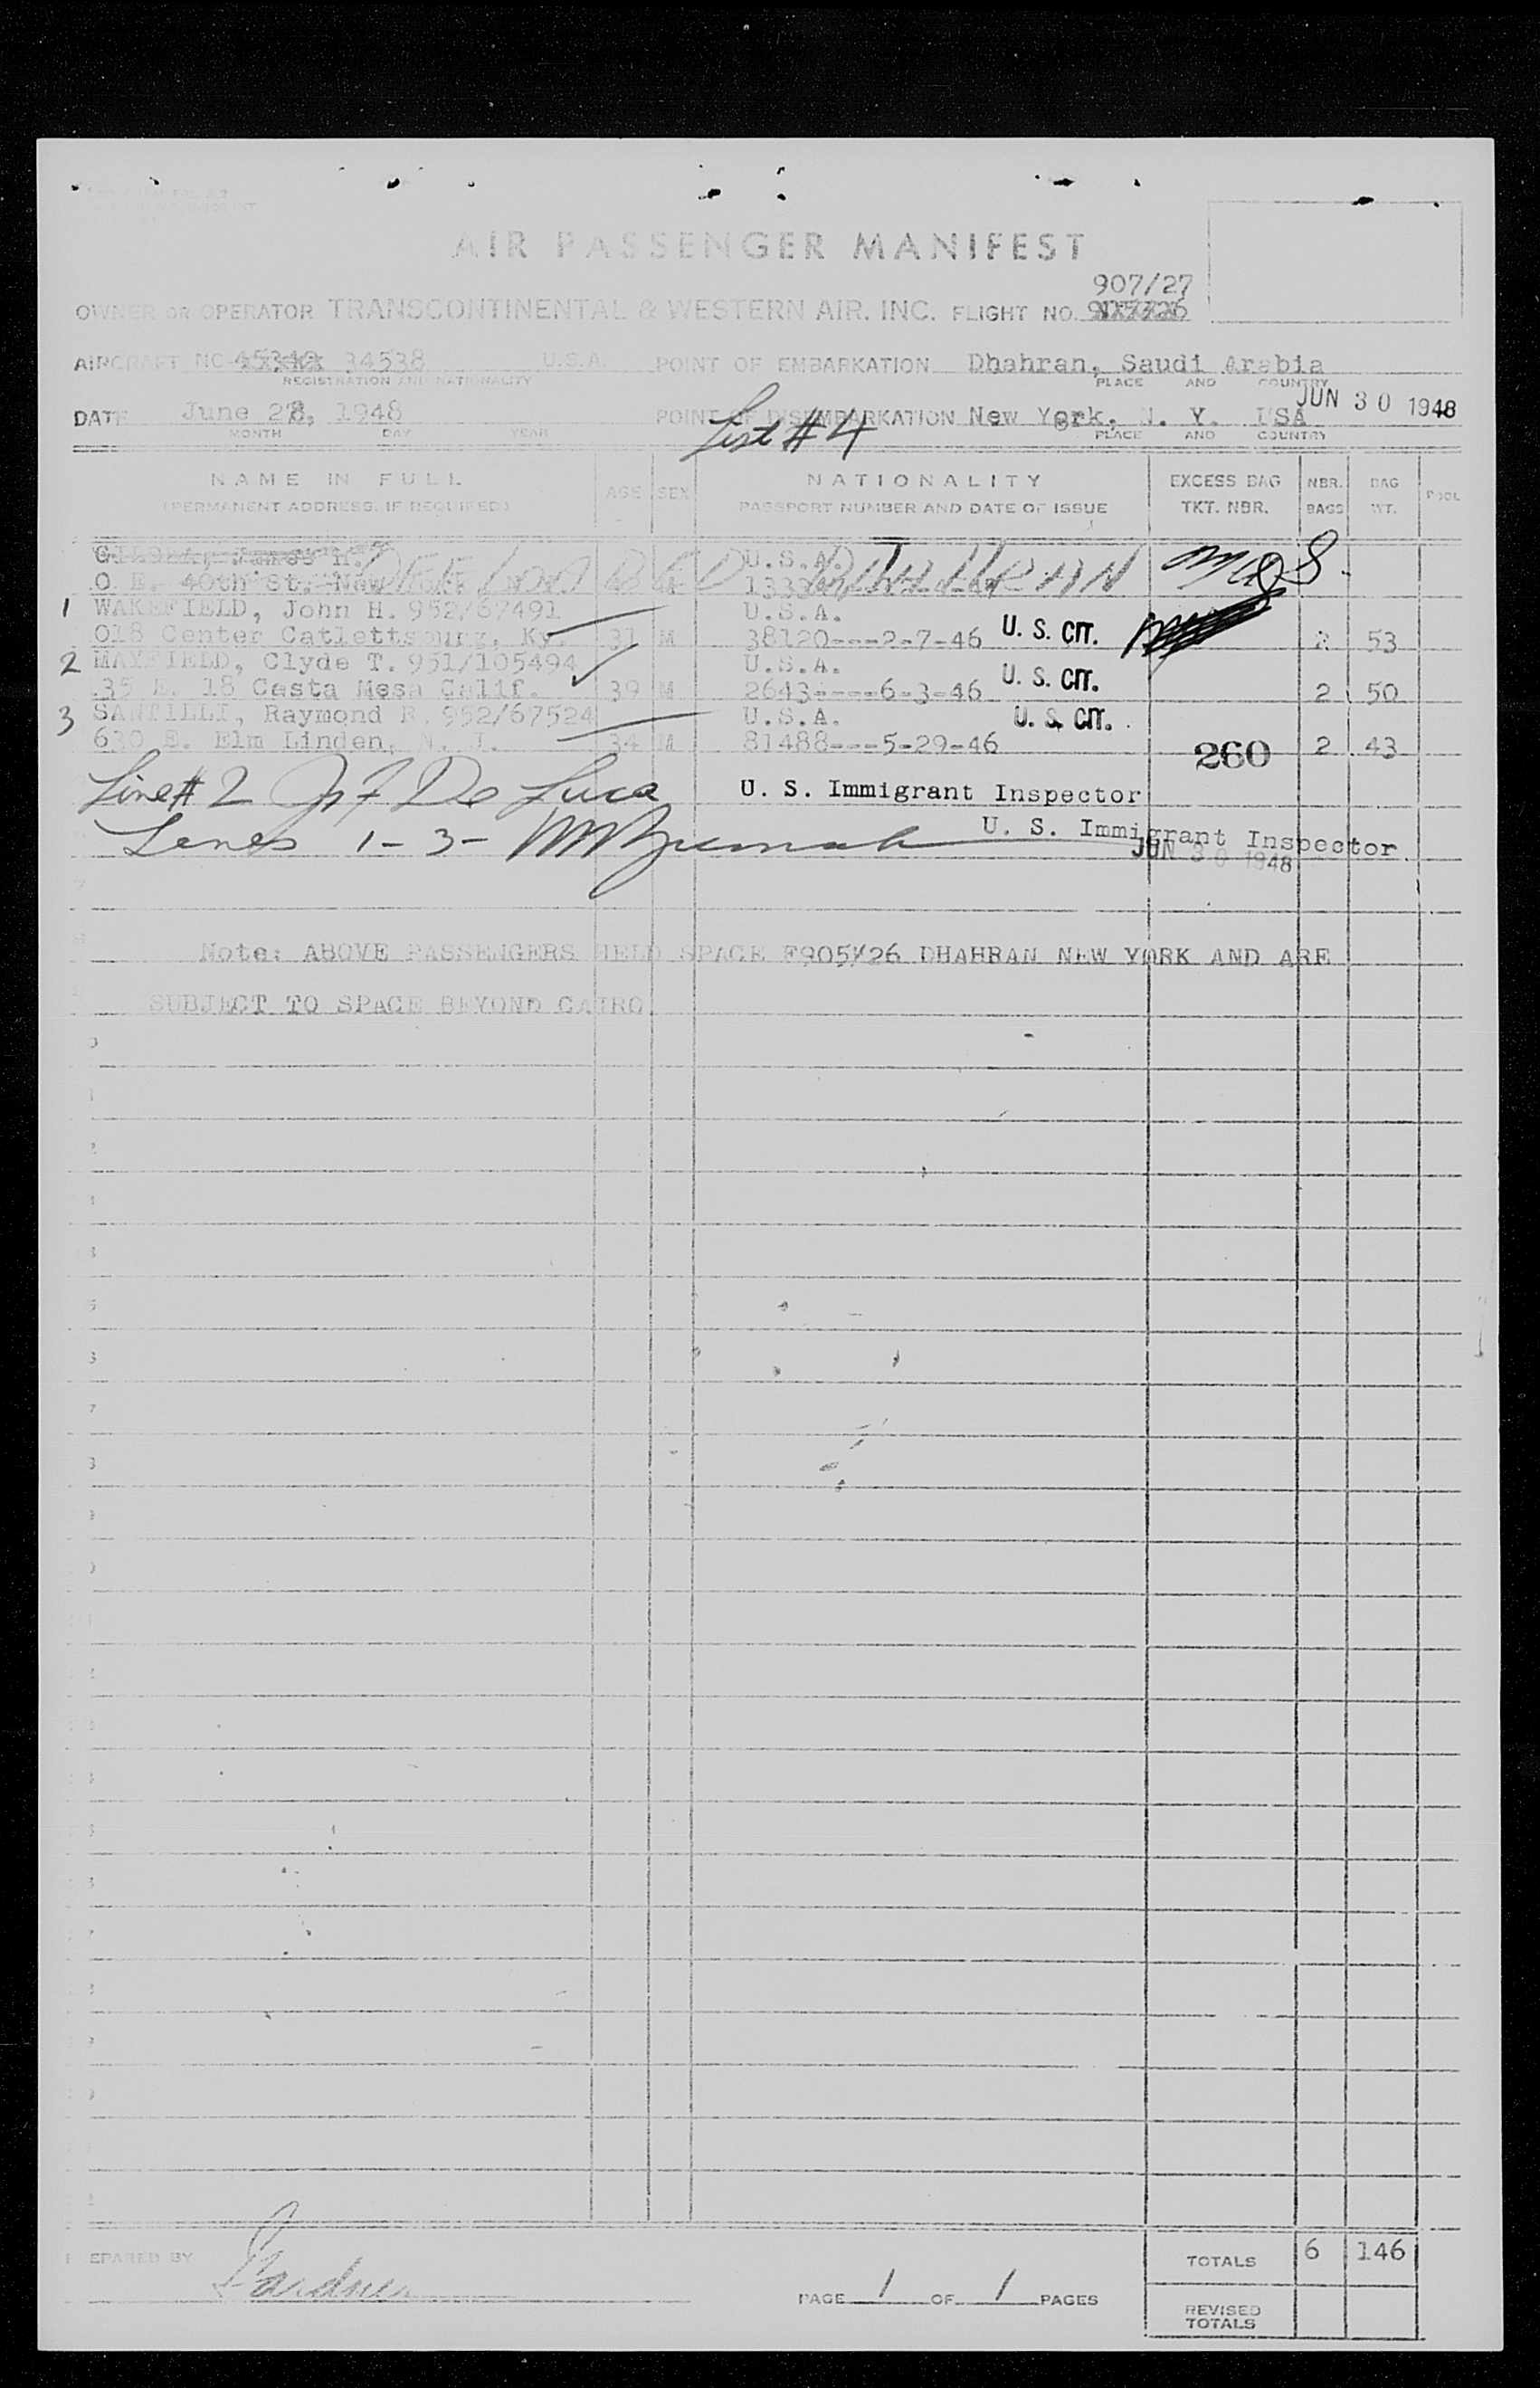 AIR PASSENGER MANIFEST
907/27
OWNER OR OPERATOR TRANSCONTINENTAL & WESTERN AIR. INC. FLIGHT NO. 905/26
AIRCRAFT NC 45340 34538 U.S.A. POINT OF EMBARKATION Dhahran, Saudi Arabia
REGISTRATION AND NATIONALITY PLACE AND COUNTRY
JUN 30 1948
DATE June 28, 1948 POINT OF DISEMBARKATION New York, N. Y. USA
MONTH DAY YEAR PLACE AND COUNTRY
List #4
NAME IN FULL AGE SEX NATIONALITY EXCESS BAG NBR. BAG POOL
(PERMANENT ADDRESS, IF REQUIRED) PASSPORT NUMBER AND DATE OF ISSUE TKT. NBR. BAGS WT.
U.S.A.
40th St. New
1 WAKEFIELD, John H. 952/67491 U.S.A.
018 Center Catlettsburg, Ky. 31 M 38120---2-7-46 U. S. CIT. 2 53
2 MAYFIELD, Clyde T. 951/105494 U.S.A.
35 E. 18 Casta Mesa Calif. 39 M 2643----6-3-46 U. S. CIT. 2 50
3 SANTILLI, Raymond R. 952/67524 U.S.A. U. S. CIT.
630 E. Elm Linden, N. J. 34 M 81488---5-29-46 260 2 43
Line # 2 De Luca U. S. Immigrant Inspector
Lines 1-3- U. S. Immigrant Inspector
JUN 30 1948
Note: ABOVE PASSENGERS HELD SPACE F905/26 DHAHRAN NEW YORK AND ARE
SUBJECT TO SPACE BEYOND CAIRO
TOTALS 6 146
PREPARED BY Gardner PAGE 1 OF 1 PAGES
REVISED
TOTALS